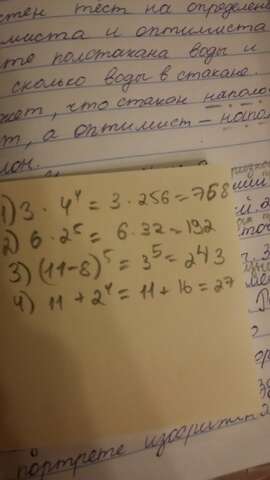 стен тест на определен
миста и оптимиста
те полстакана воды и
сколько воды в стакане.
жет, что стакан наполо
т, а оптимист – напо
лон.
1) 3 · 4⁴ = 3 · 256 = 768
2) 6 · 2⁵ = 6 · 32 = 192
3) (11-8)⁵ = 3⁵ = 243
4) 11 + 2⁴ = 11 + 16 = 27
портрете изобрази